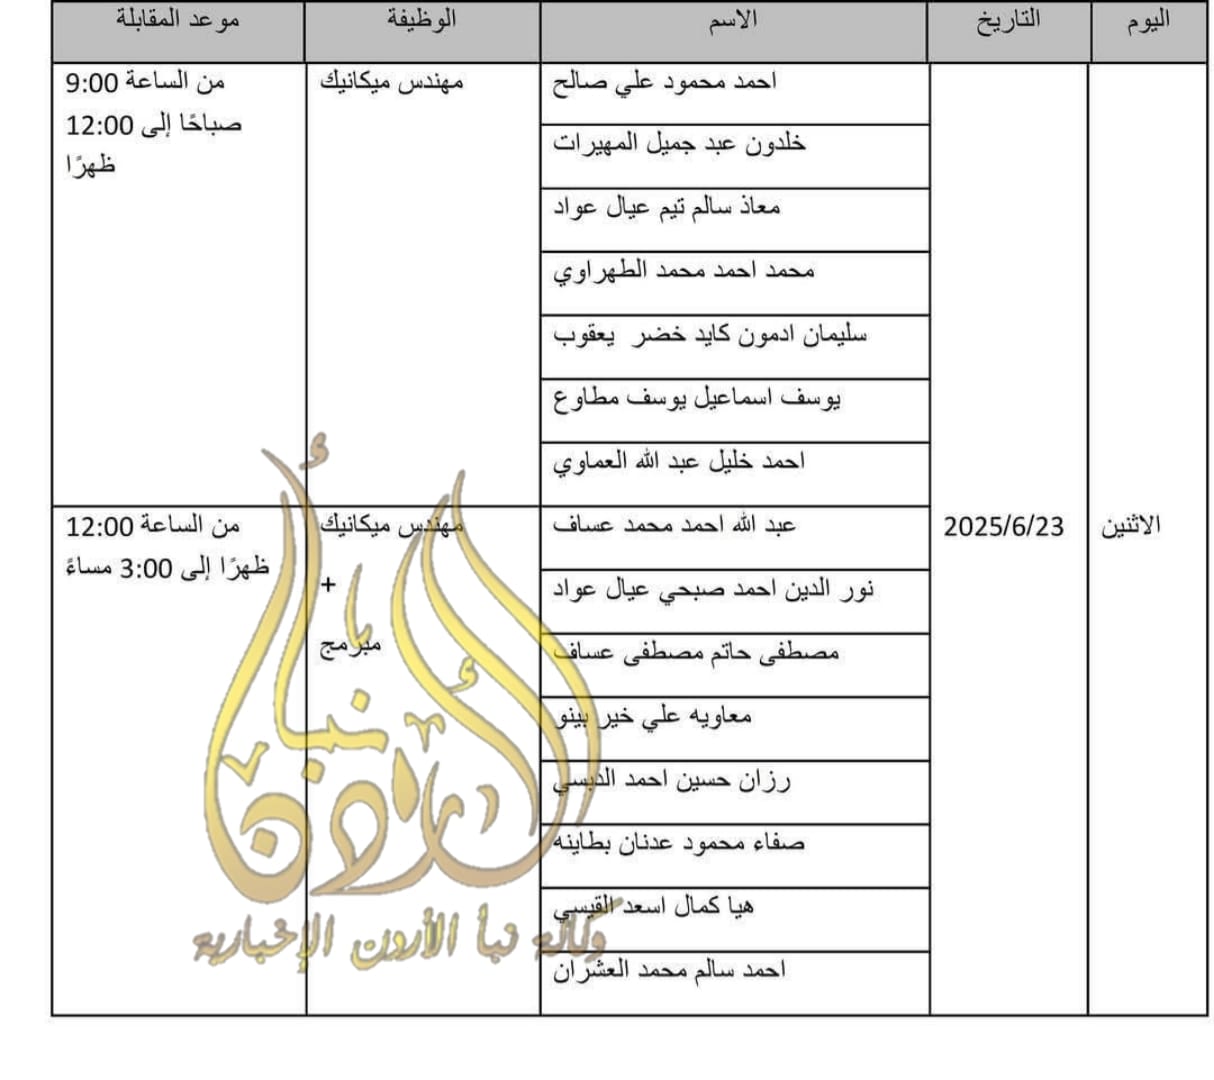 اليوم التاريخ الاسم الوظيفة موعد المقابلة
الاثنين
2025/6/23
احمد محمود علي صالح
خلدون عبد جميل المهيرات
معاذ سالم تيم عيال عواد
محمد احمد محمد الطهراوي
سليمان ادمون كايد خضر يعقوب
يوسف اسماعيل يوسف مطاوع
احمد خليل عبد الله العماوي
مهندس ميكانيك
من الساعة 9:00
صباحًا إلى 12:00
ظهرًا
عبد الله احمد محمد عساف
نور الدين احمد صبحي عيال عواد
مصطفى حاتم مصطفى عساف
معاويه علي خير بينو
رزان حسين احمد الدبسي
صفاء محمود عدنان بطاينه
هيا كمال اسعد القيسي
احمد سالم محمد العشران
مهندس ميكانيك
+
مبرمج
من الساعة 12:00
ظهرًا إلى 3:00 مساءً
نبأ
الأردن
وكالة نبأ الأردن الإخبارية